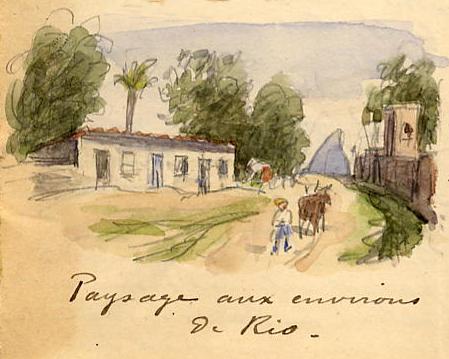 Paysage aux environs
de Rio.